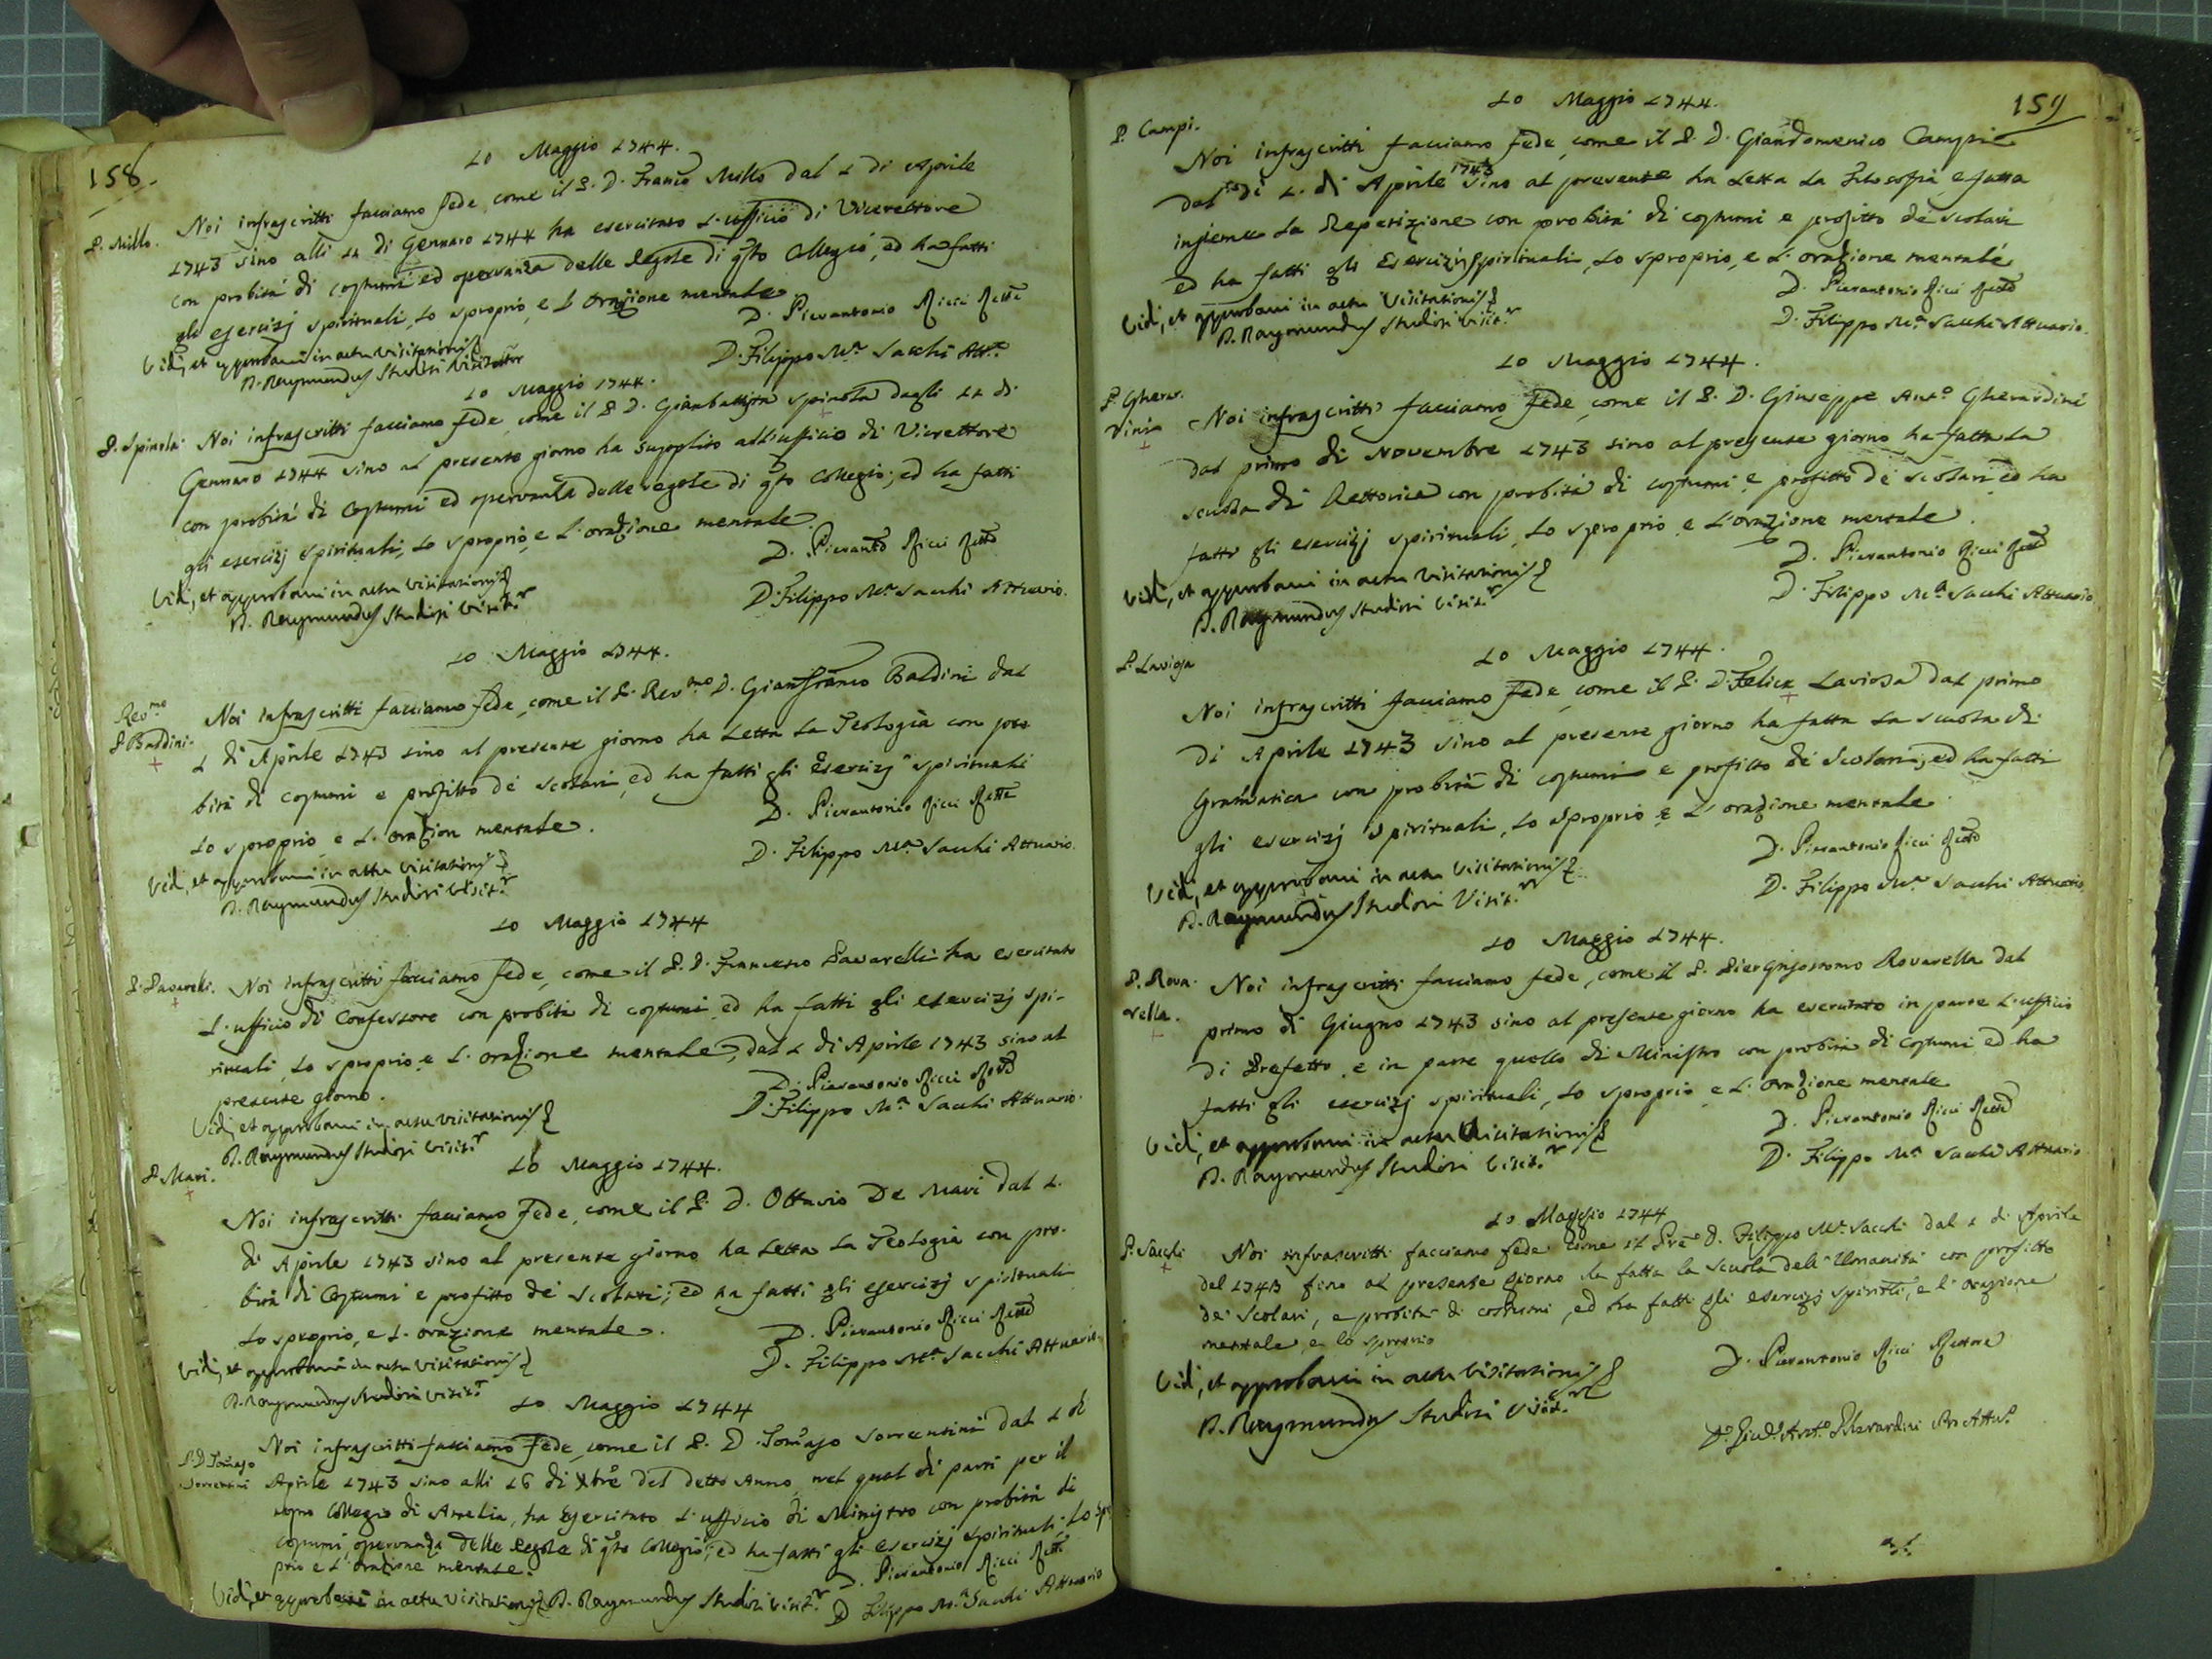 158.
10 Maggio 1744.
P. Millo.
Noi infrascritti facciamo fede, come il P. D. Franco Millo dal 1 di Aprile
1743 sino alli 11 di Gennaro 1744 ha esercitato l'ufficio di Vicerettore
con probità di costumi ed osservanza delle Regole di qsto Collegio, ed ha fatti
gli esercizj spirituali, lo sproprio, e l'orazione mentale
D. Pierantonio Ricci Rettre
D. Filippo Ma Sacchi Atto
Vidi, et approbavi in actu Visitationis
D. Raymundus Studiosi Visitator
10 Maggio 1744.
P. Spinola.
Noi infrascritti facciamo fede, come il P. D. Giambattista Spinola dagli 11 di
Gennaro 1744 sino al presente giorno ha supplito all'ufficio di Vicerettore
con probità di Costumi ed osservanza delle regole di qsto Collegio; ed ha fatti
gli esercizj spirituali, lo sproprio, e l'orazione mentale.
D. Pierantо Ricci Retto
D. Filippo Ma Sacchi Attuario.
Vidi, et approbavi in actu Visitationis
D. Raymundus Studiosi Visit.r
10 Maggio 1744.
Revmo
P. Baldini.
Noi infrascritti facciamo fede, come il P. Revmo D. Gianfranco Baldini dal
1 di Aprile 1743 sino al presente giorno ha Letta La Teologia con pro
bità di costumi e profitto de' scolari, ed ha fatti gli Esercizj spirituali
Lo sproprio, e l'orazion mentale.
D. Pierantonio Ricci Rette
D. Filippo Ma Sacchi Attuario.
Vidi, et approbavi in actu Visitationis
D. Raymundus Studiosi Visit.r
10 Maggio 1744
P. Pavarelli.
Noi infrascritti facciamo fede, come il P. D. Francesco Pavarelli ha esercitato
l'ufficio di Confessore con probità di costumi, ed ha fatti gli esercizj spi-
rituali, Lo sproprio, e l'orazione mentale, dal 1 di Aprile 1743 sino al
presente giorno.
D. Pierantonio Ricci Retto
D. Filippo Ma Sacchi Attuario.
Vidi, et approbavi in actu Visitationis
D. Raymundus Studiosi Visit.r
10 Maggio 1744.
P. Mari.
Noi infrascritti facciamo fede, come il P. D. Ottavio De Mari dal 1.
di Aprile 1743 sino al presente giorno ha Letta La Teologia con pro-
bità di Costumi e profitto de' scolari; ed ha fatti gli esercizj spirituali
Lo sproprio, e l'orazione mentale.
D. Pierantonio Ricci Retto
D. Filippo Ma Sacchi Attuario.
Vidi, et approbavi in actu Visitationis
D. Raymundus Studiosi Visit.r
10 Maggio 1744
P. D. Tomaso
Sorrentini
Noi infrascritti facciamo fede, come il P. D. Tomaso Sorrentini dal 1 di
Aprile 1743 sino alli 16 di Xbre del detto Anno, nel qual dì partì per il
nostro Collegio di Amelia, ha Esercitato l'ufficio di Ministro con probità di
costumi, osservanza delle Regole di qsto Collegio, ed ha fatti gli esercizj spirituali, Lo spro
prio e l'orazione mentale.
D. Pierantonio Ricci Rette
D Filippo Ma Sacchi Attuario
Vidi, et approbavi in actu Visitationis D. Raymundus Studiosi Visit.r
159
10 Maggio 1744.
P. Campi.
Noi infrascritti facciamo fede, come il P. D. Giandomenico Campi
dal dì 1. di Aprile 1743 sino al presente ha Letta La Filosofia e fatta
insieme La Repetizione con probità di costumi e profitto de' scolari
ed ha fatti gli Esercizj Spirituali, Lo sproprio, e l'orazione mentale
D. Pierantonio Ricci Retto
D. Filippo Ma Sacchi Attuario.
Vidi, et approbavi in actu Visitationis
D. Raymundus Studiosi Visit.r
10 Maggio 1744.
P. Gherar.
dini
Noi infrascritti facciamo fede, come il P. D. Giuseppe Anto Gherardini
dal primo di Novembre 1743 sino al presente giorno ha fatta La
scuola di Rettorica con probità di costumi, e profitto de' scolari ed ha
fatti gli esercizj spirituali, Lo sproprio, e l'orazione mentale.
D. Pierantonio Ricci Retto
D. Filippo Ma Sacchi Attuario
Vidi, et approbavi in actu Visitationis
D. Raymundus Studiosi Visit.r
10 Maggio 1744.
P. Laviosa
Noi infrascritti facciamo fede, come il P. D. Felice Laviosa dal primo
di Aprile 1743 sino al presente giorno ha fatta La scuola di
Gramatica con probità di costumi e profitto de' Scolari, ed ha fatti
gli esercizj spirituali, Lo Sproprio e l'orazione mentale.
D. Pierantonio Ricci Retto
D. Filippo Ma Sacchi Attuario
Vidi, et approbavi in actu Visitationis
D. Raymundus Studiosi Visit.r
10 Maggio 1744.
P. Rova.
rella.
Noi infrascritti facciamo fede, come il P. Piergrisostomo Rovarella dal
primo di Giugno 1743 sino al presente giorno ha esercitato in parte l'ufficio
di Prefetto, e in parte quello di Ministro con probità di Costumi, ed ha
fatti gli esercizj spirituali, Lo sproprio, e l'orazione mentale
D. Pierantonio Ricci Retto
D. Filippo Ma Sacchi Attuario.
Vidi, et approbavi in actu Visitationis
D. Raymundus Studiosi Visit.r
10 Maggio 1744
P. Sacchi
Noi infrascritti facciamo fede come il Pre D. Filippo Ma Sacchi dal 1 di Aprile
del 1743 fino al presente giorno ha fatta la Scuola dell'Umanità con profitto
de' Scolari, e probità di costumi, ed ha fatti gli esercizj spirtli, e l'orazione
mentale, e lo sproprio
D. Pierantonio Ricci Rettore
D. Giuse Anto Gherardini Pro Attuo
Vidi, et approbavi in actu Visitationis
D. Raymundus Studiosi Visit.r